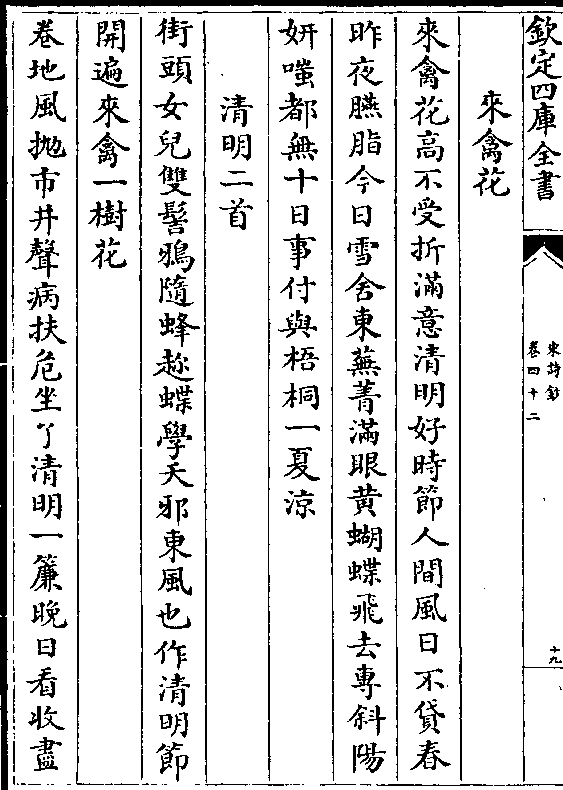 欽定四庫全書
宋詩鈔
卷四十二
十九
來禽花
來禽花髙不受折滿意清明好時節人間風日不貸春
昨夜臙脂今日雪舍東蕪菁滿眼黄蝴蝶飛去專斜陽
妍嗤都無十日事付與梧桐一夏涼
清明二首
街頭女兒雙髻鴉隨蜂趂蝶學夭邪東風也作清明節
開遍來禽一樹花
卷地風抛市井聲病扶危坐了清明一簾晚日看收盡